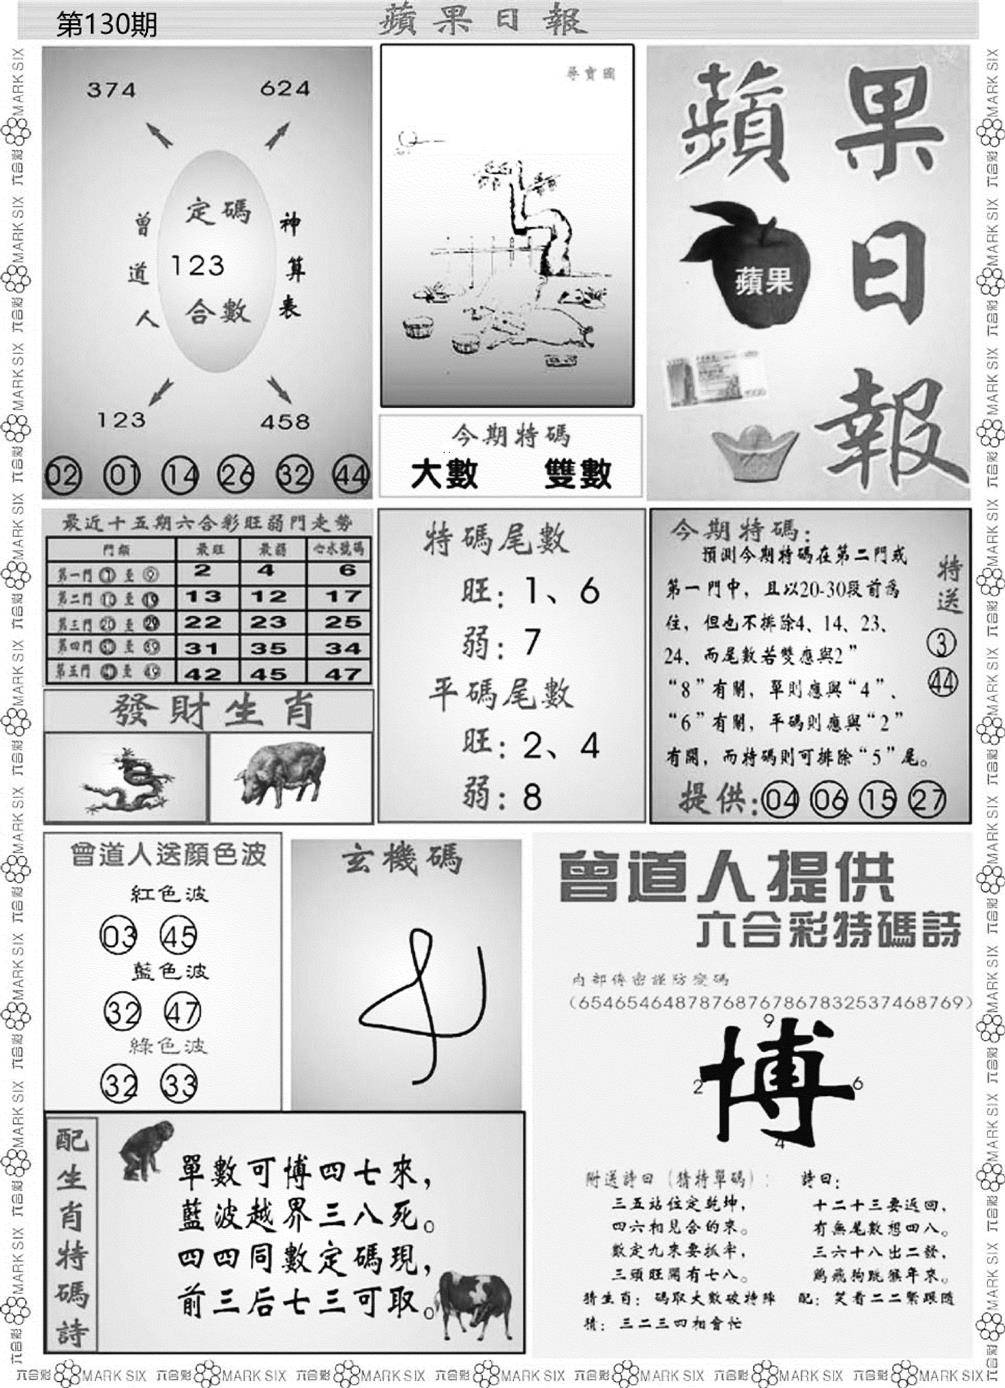 第130期
蘋果日報
374
624
曾道人
定碼
123
合數
神算表
123
458
02 01 14 26 32 44
尋寶圖
今期特碼
大數 雙數
蘋果日報
蘋果
最近十五期六合彩旺弱門走勢
門類 最旺 最弱 心水號碼
第一門 1 至 9 2 4 6
第二門 10 至 19 13 12 17
第三門 20 至 29 22 23 25
第四門 30 至 39 31 35 34
第五門 40 至 49 42 45 47
發財生肖
特碼尾數
旺：1、6
弱：7
平碼尾數
旺：2、4
弱：8
今期特碼：
預測今期特碼在第二門或
第一門中，且以20-30段前為
住，但也不排除4、14、23、
24、而尾數若雙應與2”
“8”有關，單則應與“4”、
“6”有關，平碼則應與“2”
有關，而特碼則可排除“5”尾。
提供：04 06 15 27
特送
3
44
曾道人送顏色波
紅色波
03 45
藍色波
32 47
綠色波
32 33
玄機碼
曾道人提供
六合彩特碼詩
內部傳密謹防變碼
（65465464878768767867832537468769）
博
9
2
6
4
附送詩曰（猜特單碼）：
三五站位定乾坤，
四六相見合的來。
數定九來要抓牢，
三頭旺開有七八。
猜生肖：碼取大數破特陣
猜：三二三四相會忙
詩曰：
十二十三要返回，
有無尾數想四八。
三六十八出二發，
鷄飛狗跳猴年來。
配：笑看二二緊跟隨
配生肖特碼詩
單數可博四七來，
藍波越界三八死。
四四同數定碼現，
前三后七三可取。
六合彩 MARK SIX